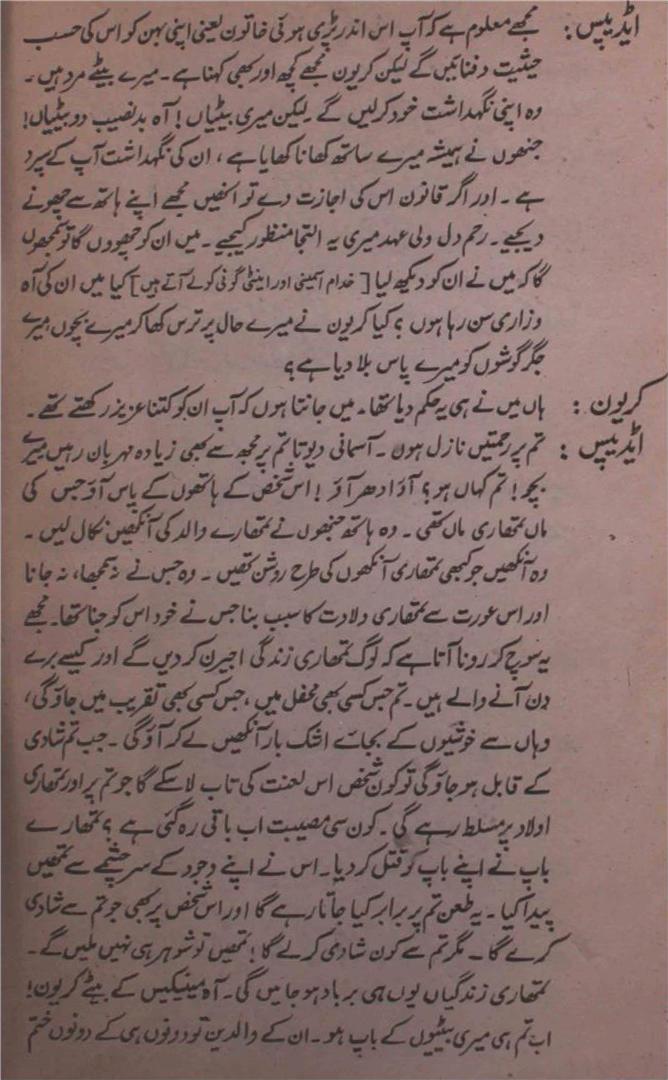 ایڈیپس: مجھے معلوم ہے کہ آپ اس اندر پڑی ہوئی خاتون یعنی اپنی بہن کو اس کی حسب
حیثیت دفنائیں گے لیکن کریون مجھے کچھ اور بھی کہنا ہے۔ میرے بیٹے مرد ہیں۔
وہ اپنی نگہداشت خود کرلیں گے لیکن میری بیٹیاں! آہ بدنصیب دو بیٹیاں!
جنھوں نے ہمیشہ میرے ساتھ کھانا کھایا ہے، ان کی نگہداشت آپ کے سپرد
ہے۔ اور اگر قانون اس کی اجازت دے تو انھیں مجھے اپنے ہاتھ سے چھونے
دیجیے۔ رحم دل ولی عہد میری یہ التجا منظور کیجیے۔ میں ان کو چھووں گا تو سمجھوں
گا کہ میں نے ان کو دیکھ لیا [خدام اسمینی اور اینٹی گونی کو لے آتے ہیں] کیا میں ان کی آہ
و زاری سن رہا ہوں؟ کیا کریون نے میرے حال پر ترس کھا کر میرے بچوں میرے
جگر گوشوں کو میرے پاس بلا دیا ہے؟
کریون: ہاں میں نے ہی یہ حکم دیا تھا۔ میں جانتا ہوں کہ آپ ان کو کتنا عزیز رکھتے تھے۔
ایڈیپس: تم پر رحمتیں نازل ہوں۔ آسمانی دیوتا تم پر مجھ سے بھی زیادہ مہربان رہیں میرے
بچو! تم کہاں ہو؟ آؤ ادھر آؤ! اس شخص کے ہاتھوں کے پاس آؤ جس کی
ماں تمھاری ماں تھی۔ وہ ہاتھ جنھوں نے تمھارے والد کی آنکھیں نکال لیں۔
وہ آنکھیں جو کبھی تمھاری آنکھوں کی طرح روشن تھیں۔ وہ جس نے نہ سمجھا، نہ جانا
اور اس عورت سے تمھاری ولادت کا سبب بنا جس نے خود اس کو جنا تھا۔ مجھے
یہ سوچ کر رونا آتا ہے کہ لوگ تمھاری زندگی اجیرن کردیں گے اور کیسے برے
دن آنے والے ہیں۔ تم جس کسی بھی محفل میں، جس کسی بھی تقریب میں جاؤگی،
وہاں سے خوشیوں کے بجائے اشک بار آنکھیں لے کر آؤگی۔ جب تم شادی
کے قابل ہو جاؤگی تو کون شخص اس لعنت کی تاب لا سکے گا جو تم پر اور تمھاری
اولاد پر مسلط رہے گی۔ کون سی مصیبت اب باقی رہ گئی ہے؟ تمھارے
باپ نے اپنے باپ کو قتل کردیا۔ اس نے اپنے وجود کے سرچشمے سے تمھیں
پیدا کیا۔ یہ طعن تم پر برابر کیا جاتا رہے گا اور اس شخص پر بھی جو تم سے شادی
کرے گا۔ مگر تم سے کون شادی کرلے گا! تمھیں تو شوہر ہی نہیں ملیں گے۔
تمھاری زندگیاں یوں ہی برباد ہوجائیں گی۔ آہ مینیکیس کے بیٹے کریون!
اب تم ہی میری بیٹیوں کے باپ ہو۔ ان کے والدین تو دونوں ہی کے دونوں ختم